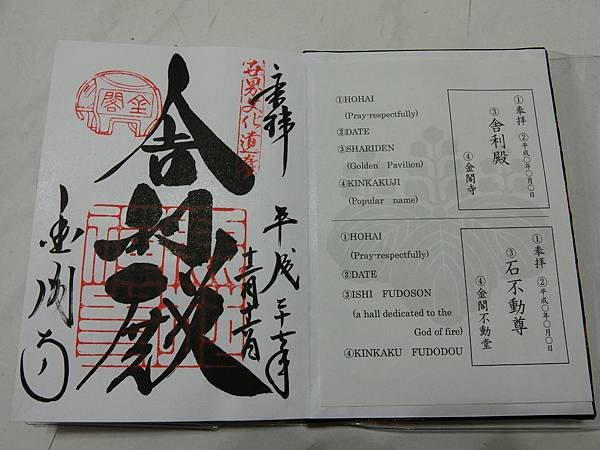 世界文化遺産
奉拝
舎利殿
金閣
金閣寺
①HOHAI
(Pray-respectfully)
②DATE
③SHARIDEN
(Golden Pavilion)
④KINKAKUJI
(Popular name)
①奉拝 ②平成〇年〇月〇日
③舎利殿
④金閣寺
①HOHAI
(Pray-respectfully)
②DATE
③ISHI FUDOSON
(a hall dedicated to the
God of fire)
④KINKAKU FUDODOU
①奉拝 ②平成〇年〇月〇日
③石不動尊
④金閣不動堂